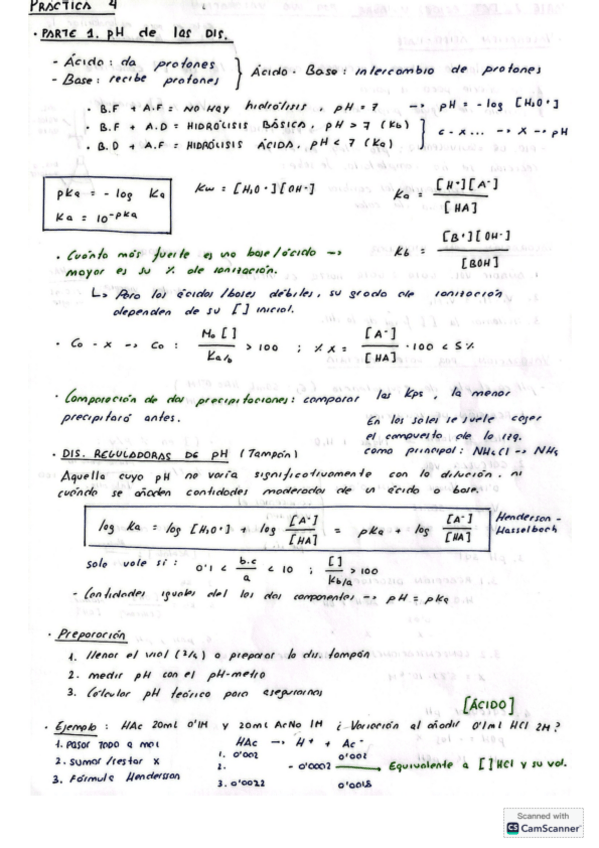 PRÁCTICA 4
· PARTE 1. pH de las DIS.
- Ácido: da protones
- Base: recibe protones
Ácido - Base: intercambio de protones
· B.F + A.F = NO HAY hidrólisis, pH = 7 → pH = - log [H₃O⁺]
· B.F + A.D = HIDRÓLISIS BÁSICA, pH > 7 (Kb)
· B.D + A.F = HIDRÓLISIS ÁCIDA, pH < 7 (Ka)
c - x ... → x → pH
pKa = - log Ka
Ka = 10^-pKa
Kw = [H₃O⁺][OH⁻]
Ka = [H⁺][A⁻] / [HA]
Kb = [B⁺][OH⁻] / [BOH]
· Cuánto más fuerte es una base/ácido →
mayor es su % de ionización.
↳ Para los ácidos/bases débiles, su grado de ionización
dependen de su [ ] inicial.
· Co - x → Co : Mo [ ] / Ka/b > 100 ; % x = [A⁻] / [HA] · 100 < 5 %
· Comparación de dos precipitaciones: comparar las Kps, la menor
precipitará antes.
En las sales se suele coger
el compuesto de la izq.
como principal: NH₄Cl → NH₄
· DIS. REGULADORAS DE pH (Tampón)
Aquella cuyo pH no varía significativamente con la dilución, ni
cuándo se añaden cantidades moderadas de un ácido o base.
log Ka = log [H₃O⁺] + log [A⁻] / [HA] = pKa + log [A⁻] / [HA]
Henderson -
Hasselbach
solo vale si : 0'1 < b.c / a < 10 ; [ ] / Kb/a > 100
- Cantidades iguales del los dos componentes → pH = pKa
· Preparación
1. llenar el vial (3/4) o preparar la dis. tampón
2. medir pH con el pH-metro
3. Calcular pH teórico para asegurarnos
[ÁCIDO]
· Ejemplo : HAc 20ml 0'1M y 20ml AcNa 1M ¿- Variación al añadir 0'1ml HCl 2M?
1. Pasar TODO a mol
2. sumar/restar x
3. Fórmula Henderson
HAc → H⁺ + Ac⁻
1. 0'002 0'002
2. - 0'0002 → Equivalente a [ ] HCl y su vol.
3. 0'0022 0'0018
Scanned with
CS CamScanner